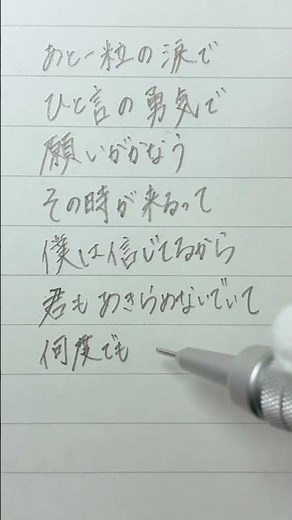 あと一粒の涙で
ひと言の勇気で
願いがかなう
その時が来るって
僕は信じてるから
君もあきらめないでいて
何度でも